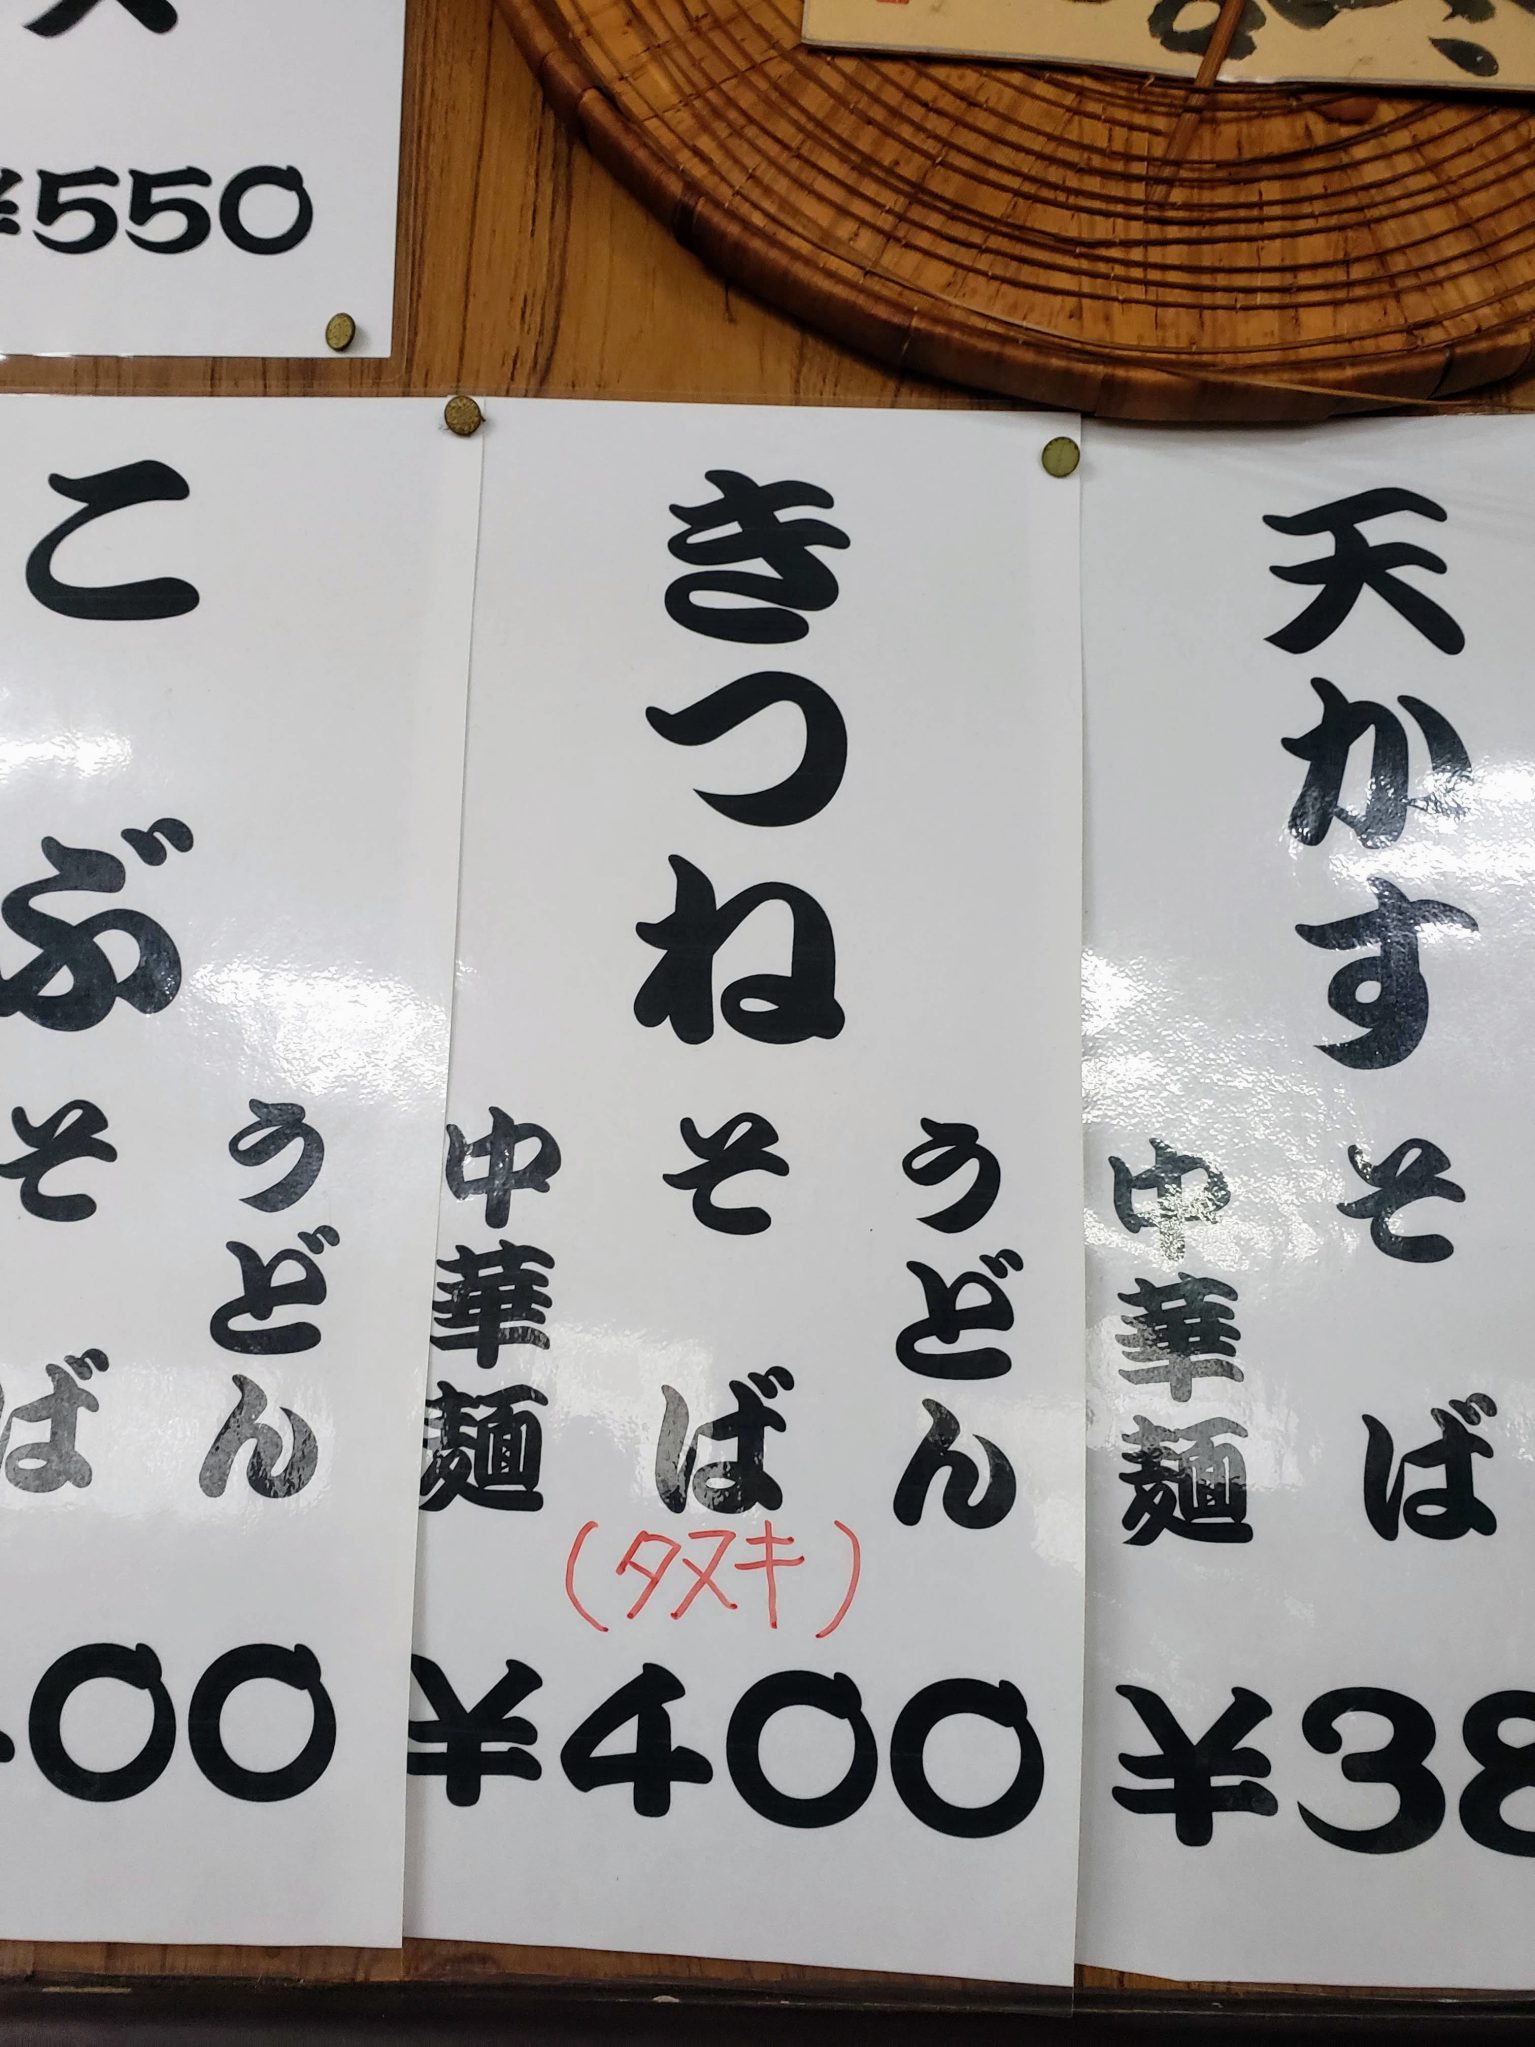 ¥550
天かす
そば
中華麺
¥38
きつね
うどん
そば
(タヌキ)
中華麺
¥400
こぶ
うどん
そば
00